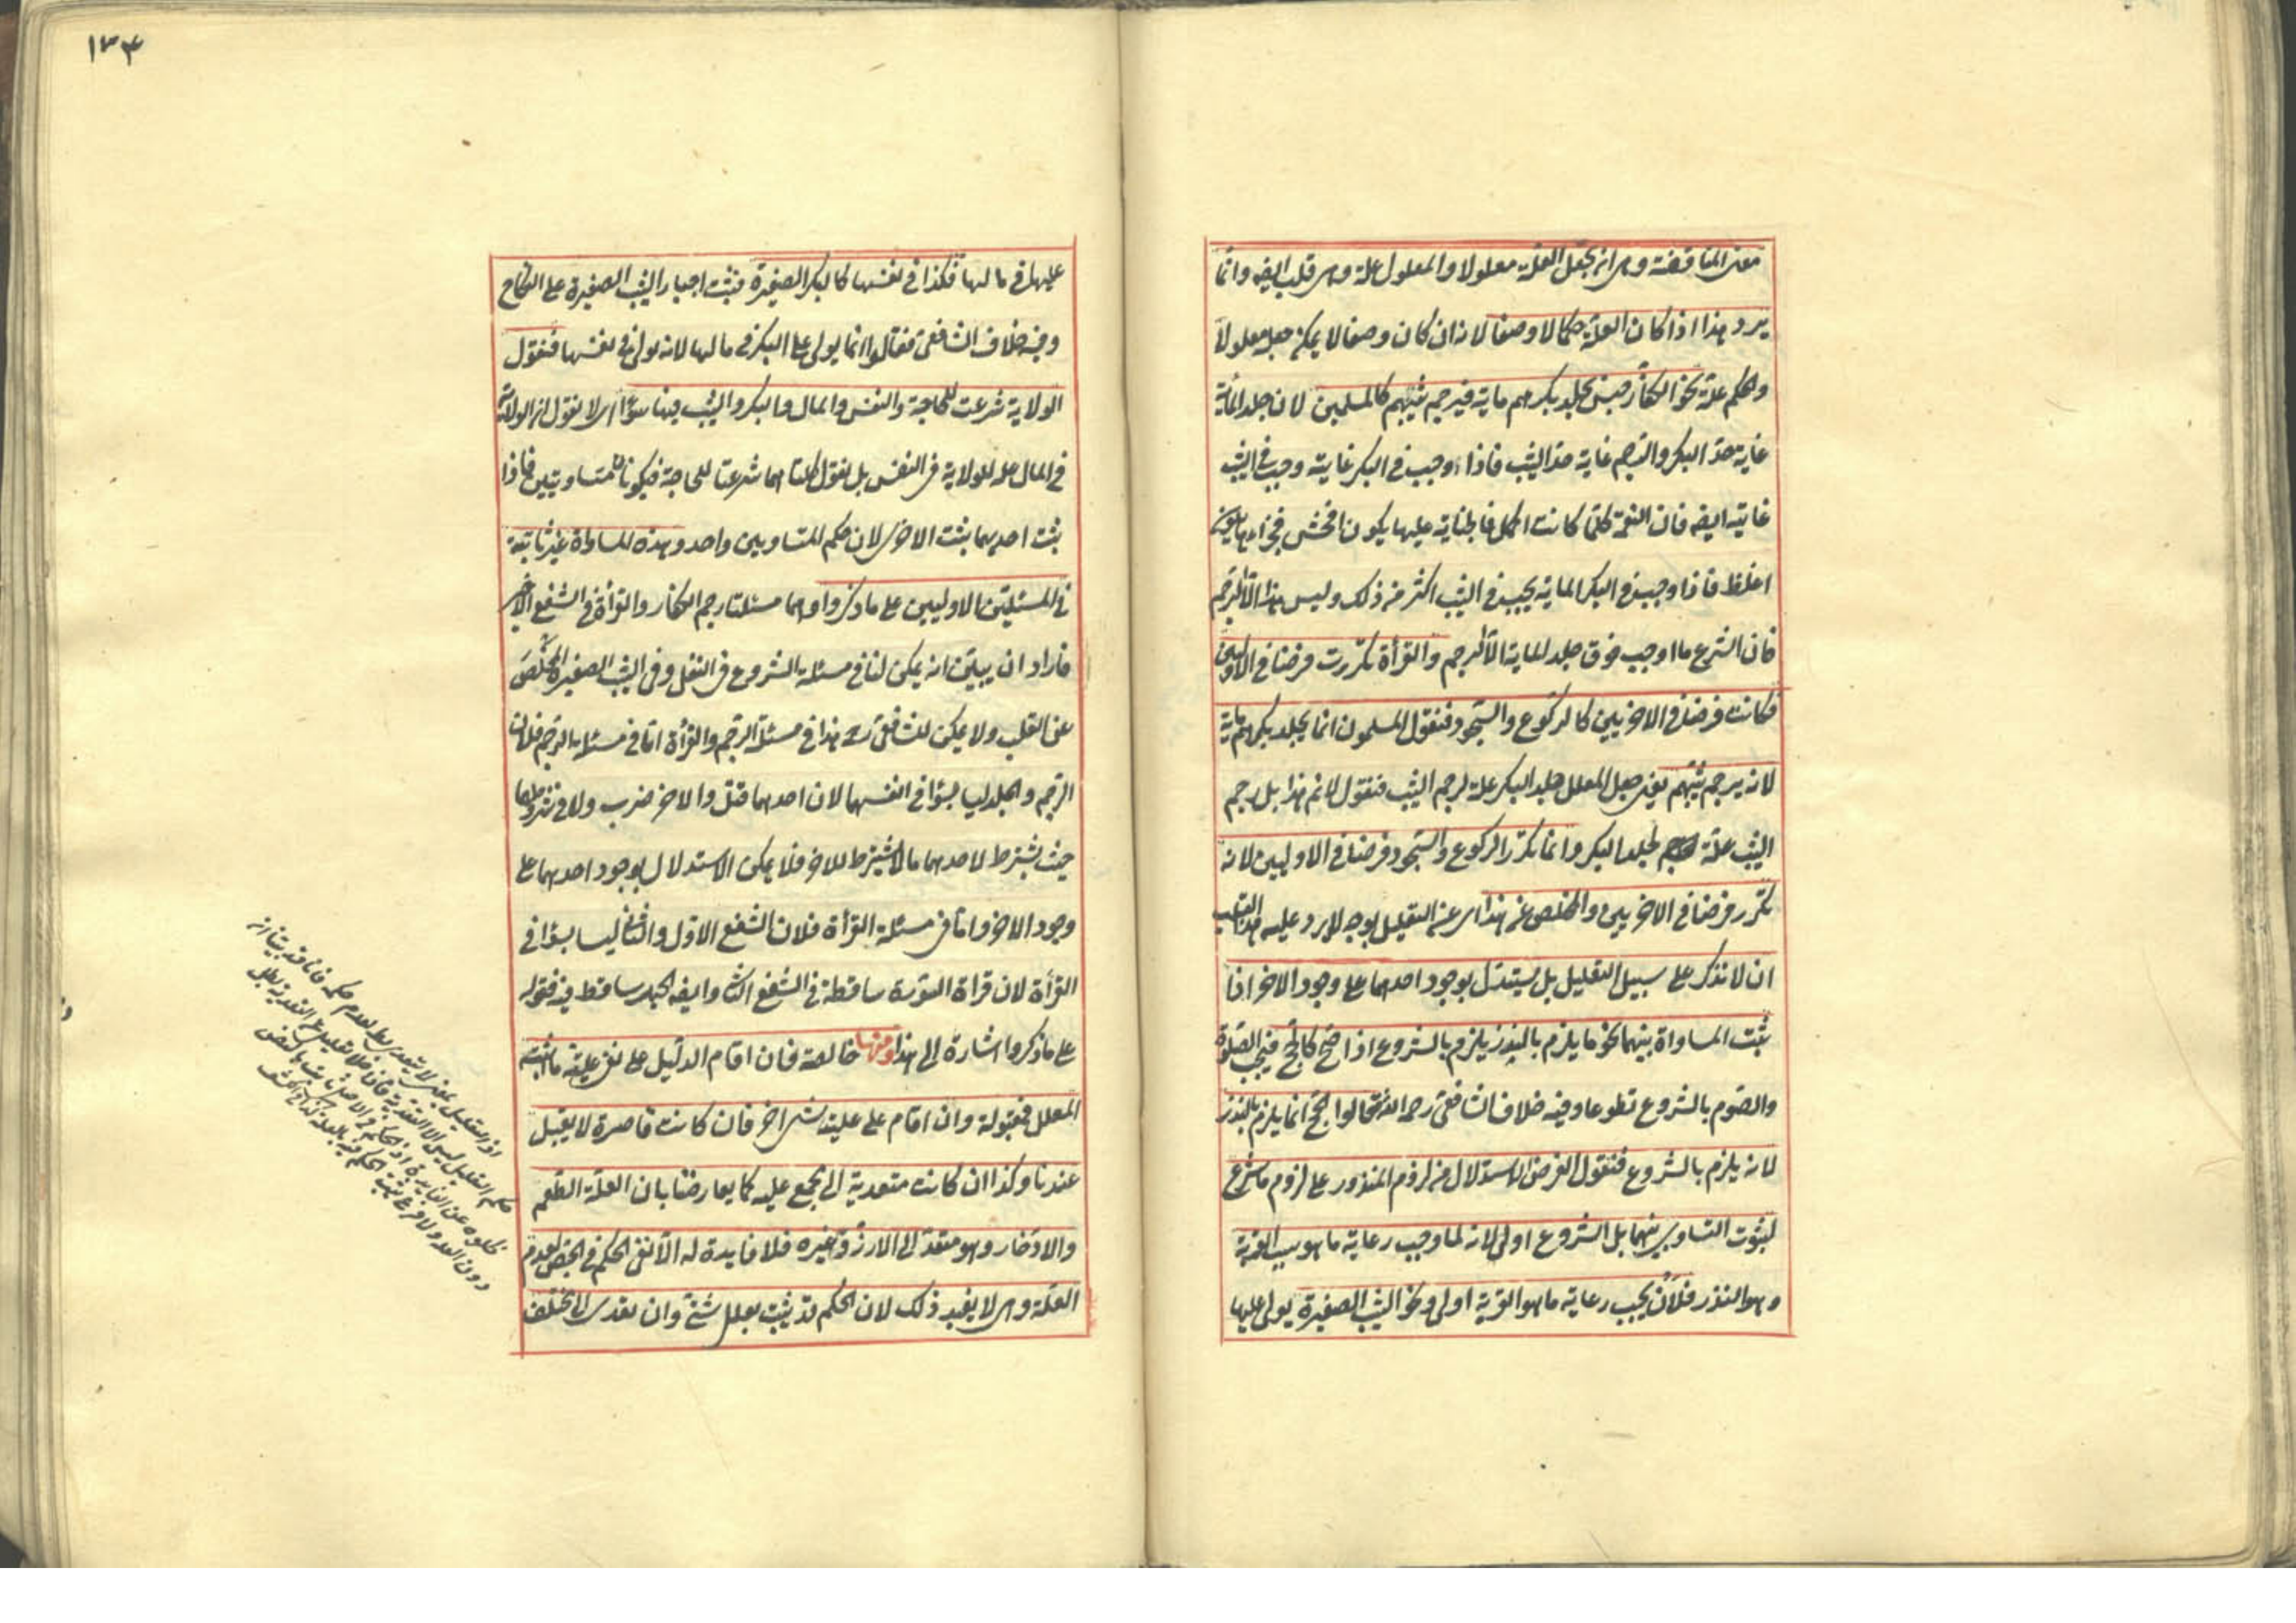 معنى المناقضة وهي ان يجعل العلة معلولا والمعلول علة وهي قلب ايضه وانما
يرد هذا اذا كان العلة حكما لا وصفا لانه ان كان وصفا لا يمكن جعله معلولا
والحكم علة نحو الكفار جنس يجلد بكرهم ماية فيرجم ثيبهم كالمسلمين لان جلد الماية
غاية حد البكر والرجم غاية حد الثيب فاذا وجب في البكر غايته وجب في الثيب
غايته ايضه فان النعمة كلما كانت اكمل فالجناية عليها يكون افحش فجزاءها يكون
اغلظ فاذا وجب في البكر الماية يجب في الثيب اكثر من ذلك وليس هذا الا الرجم
فان الشرع ما اوجب فوق جلد الماية الا الرجم والقرأة تكررت فرضا في الاوليين
فكانت فرضا في الاخريين كالركوع والسجود فنقول المسلمون انما يجلد بكرهم ماية
لانه يرجم ثيبهم يعني جعل المعلل جلد البكر علة لرجم الثيب فنقول لا نم هذا بل رجم
الثيب علة لجلد البكر وانما تكرر الركوع والسجود فرضا في الاوليين لانه
تكرر فرضا في الاخريين والمخلص عن هذا اى عن التعليل بوجه لا يرد عليه هذا القلب
ان لا نذكر على سبيل التعليل بل يستدل بوجود احدهما على وجود الاخر اذا
ثبت المساواة بينهما نحو ما يلزم بالنذر يلزم بالشروع اذا صح كالحج فيجب الصلوة
والصوم بالشروع تطوعا وفيه خلاف الشافعى رحمه الله فقالوا الحج انما يلزم بالنذر
لانه يلزم بالشروع فنقول الغرض الاستدلال من لزوم المنذور على لزوم ما شرع
لثبوت التساوى بينهما بل الشروع اولى لانه لما وجب رعاية ما هو سبب القربة
وهو النذر فلأن يجب رعاية ما هو القربة اولى ونحو الثيب الصغيرة يولى عليها
١٣٤
عليها في مالها فكذا في نفسها كالبكر الصغيرة فيثبت اجبار الثيب الصغيرة على النكاح
وفيه خلاف الشافعى فقالوا انما يولى على البكر في مالها لانه يولى في نفسها فنقول
الولاية شرعت للحاجة والنفس والمال والبكر والثيب فيها سواء اى لا نقول ان الولاية
في المال علة للولاية في النفس بل نقول كلتاهما شرعتا للحاجة فيكونان متساويتين فاذا
ثبت احديهما يثبت الاخرى لان حكم المتساويين واحد وهذه المساواة غير ثابتة
في المسئلتين الاوليين على ما ذكروا وهما مسئلتا رجم الكفار والقرأة في الشفع الاخير
فاراد ان يبين انه يمكن لنا في مسئلة الشروع في النفل وفي الثيب الصغيرة المخلص
عن القلب ولا يمكن للشافعى رح هذا في مسئلة الرجم والقرأة اما في مسئلة الرجم فلان
الرجم والجلد ليسا بسواء في انفسهما لان احدهما قتل والاخر ضرب ولا في شروطهما
حيث يشترط لاحدهما ما لا يشترط للاخر فلا يمكن الاستدلال بوجود احدهما على
وجود الاخر واما في مسئلة القرأة فلان الشفع الاول والثانى ليسا بسواء في
القرأة لان قراة السورة ساقطة في الشفع الثانى وايضه الجهر ساقط فيه فقوله
على ما ذكروا اشارة الى هذا ومنها خالصة فان اقام الدليل على نفى علية ما اثبته
المعلل فمقبولة وان اقام على علية شئ اخر فان كانت قاصرة لا يقبل
عندنا وكذا ان كانت متعدية الى مجمع عليه كما يعارضنا بان العلة الطعم
والادخار وهو متعد الى الارز وغيره فلا فايدة له الا نفى الحكم في الجص لعدم
العلة وهي لا يفيد ذلك لان الحكم قد يثبت بعلل شتى وان تعدى الى مختلف